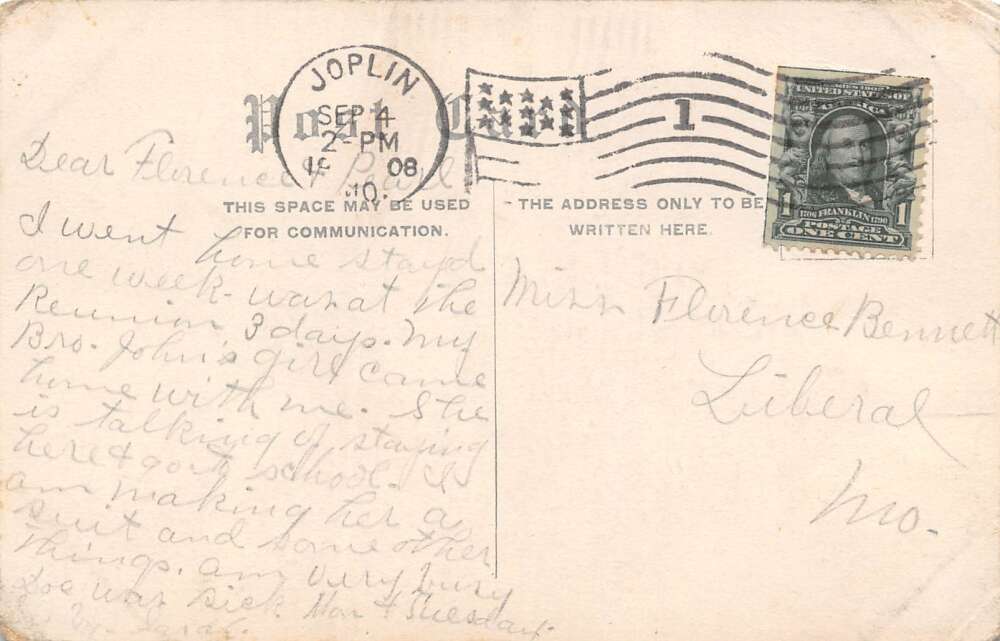 Post Card
JOPLIN
SEP 4
2-PM
19 08
MO.
1
SERIES 1902
UNITED STATES OF
AMERICA
1 1
1706 FRANKLIN 1790
POSTAGE
ONE CENT
THIS SPACE MAY BE USED
FOR COMMUNICATION.
THE ADDRESS ONLY TO BE
WRITTEN HERE.
Dear Florence & Pearl
I went home stayd
one week. was at the
Reunion 3 days. My
Bro. John's girl came
home with me. She
is talking of staying
here & go to school. I
am making her a
suit and some other
things. am very busy
Doc was sick Mon & Tuesday.
Sarah.
Miss Florence Bennett
Liberal
Mo.